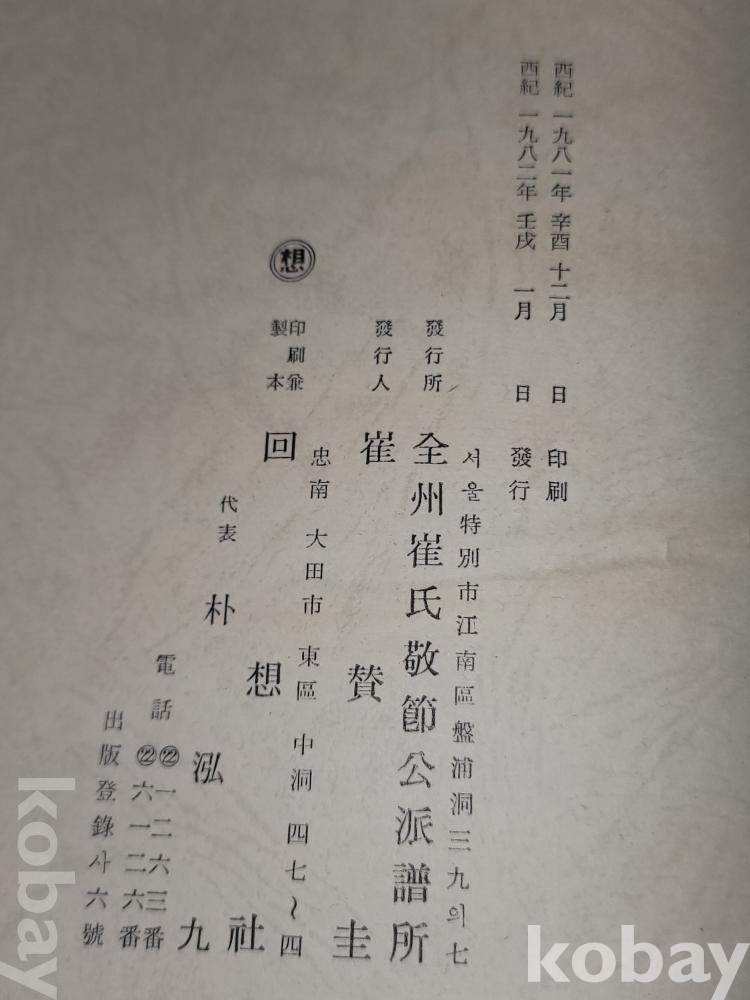 西紀 一九八一年 辛酉 十二月 日 印刷
西紀 一九八二年 壬戌 一月 日 發行
서울特別市江南區盤浦洞三九의七
發行所 全州崔氏敬節公派譜所
發行人 崔贊圭
忠南 大田市 東區 中洞 四七~四
想
印刷兼
製本
回想社
代表 朴泓九
電話 ㉒一二六三番
㉒六一二六番
出版登錄사六號
kobay
kobay